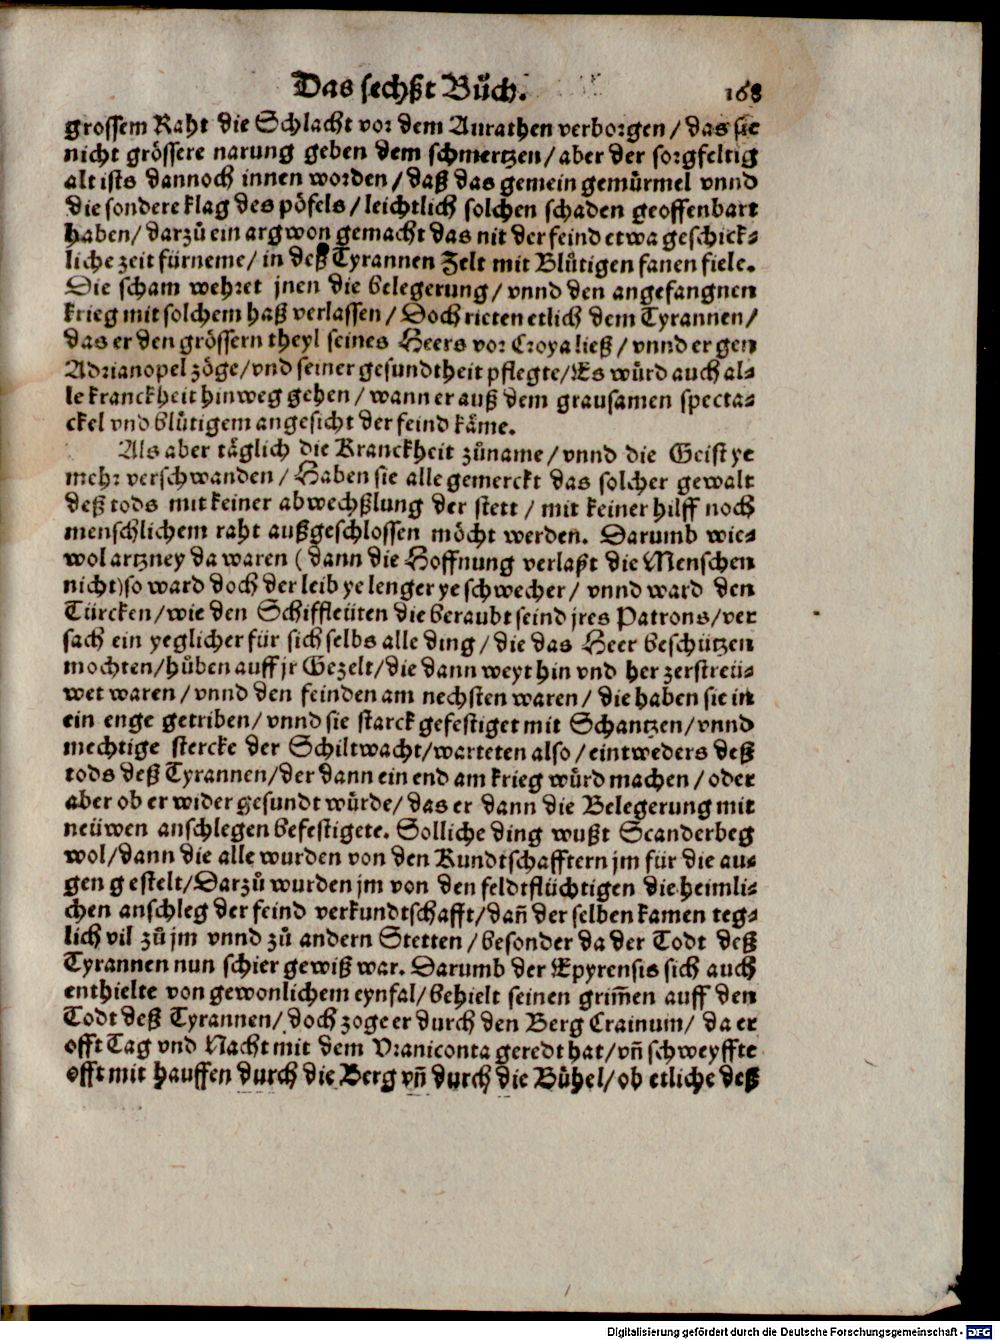 Das sechßt Bůch. 168
grossem Raht die Schlacht vor dem Anrathen verborgen / das sie
nicht grössere narung geben dem schmertzen / aber der sorgfeltig
alt ists dannoch innen worden / daß das gemein gemürmel vnnd
die sondere klag des pöfels / leichtlich solchen schaden geoffenbart
haben / darzů ein argwon gemacht das nit der feind etwa geschick⸗
liche zeit fürneme / in deß Tyrannen Zelt mit Blůtigen fanen fiele.
Die scham wehret jnen die belegerung / vnnd den angefangnen
krieg mit solchem haß verlassen / Doch rieten etlich dem Tyrannen /
das er den grössern theyl seines Heers vor Croya ließ / vnnd er gen
Adrianopel zöge / vnd seiner gesundtheit pflegte / Es würd auch al⸗
le kranckheit hinweg gehen / wann er auß dem grausamen specta⸗
ckel vnd blůtigem angesicht der feind käme.
Als aber täglich die Kranckheit zůname / vnnd die Geist ye
mehr verschwanden / Haben sie alle gemerckt das solcher gewalt
deß tods mit keiner abwechßlung der stett / mit keiner hilff noch
menschlichem raht außgeschlossen möcht werden. Darumb wie⸗
wol artzney da waren ( dann die Hoffnung verlaßt die Menschen
nicht) so ward doch der leib ye lenger ye schwecher / vnnd ward den
Türcken / wie den Schiffleüten die beraubt seind jres Patrons / ver
sach ein yeglicher für sich selbs alle ding / die das Heer beschützen
mochten / hůben auff jr Gezelt / die dann weyt hin vnd her zerstreü⸗
wet waren / vnnd den feinden am nechsten waren / die haben sie in
ein enge getriben / vnnd sie starck gefestiget mit Schantzen / vnnd
mechtige stercke der Schiltwacht / warteten also / eintweders deß
tods deß Tyrannen / der dann ein end am krieg würd machen / oder
aber ob er wider gesundt würde / das er dann die Belegerung mit
neüwen anschlegen befestigete. Solliche ding wußt Scanderbeg
wol / dann die alle wurden von den Kundtschafftern jm für die au⸗
gen gestelt / Darzů wurden jm von den feldtflüchtigen die heimli⸗
chen anschleg der feind verkundtschafft / dañ der selben kamen teg⸗
lich vil zů jm vnnd zů andern Stetten / besonder da der Todt deß
Tyrannen nun schier gewiß war. Darumb der Epyrensis sich auch
enthielte von gewonlichem eynfal / behielt seinen grim̃en auff den
Todt deß Tyrannen / doch zoge er durch den Berg Crainum / da er
offt Tag vnd Nacht mit dem Vraniconta geredt hat / vñ schweyffte
offt mit hauffen durch die Berg vñ durch die Bühel / ob etliche deß
Digitalisierung gefördert durch die Deutsche Forschungsgemeinschaft - DFG